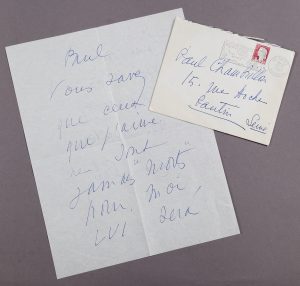 Paul
vous savez
que ceux
que j'aime
ne sont
jamais "morts"
pour moi,
LUI sera,
Paul Chambrillon
15. rue Hoche
Pantin
Seine